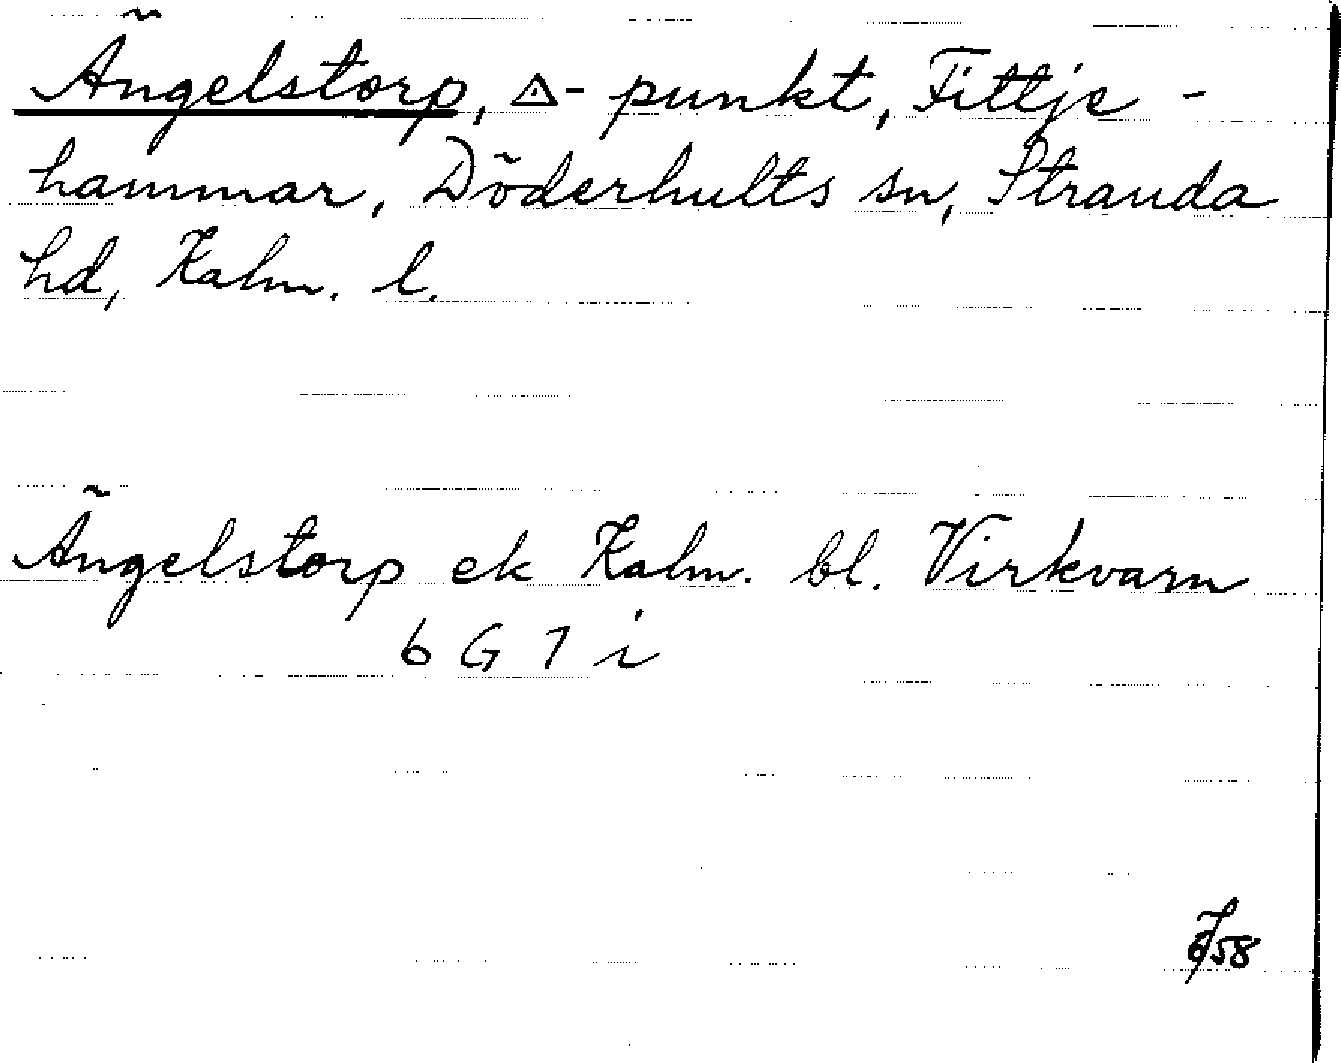 Ängelstorp, △-punkt, Fittje-
hammar, Döderhults sn, Stranda
hd, Kalm. l.
Ängelstorp ek Kalm. bl. Virkvarn
6 G 7 i